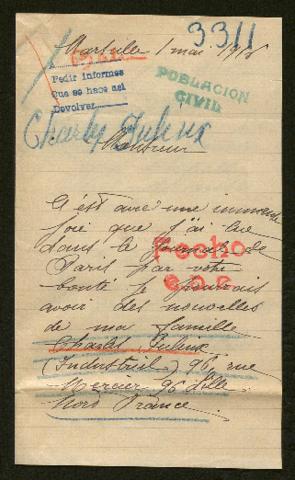 3311
Marseille 1 mai 1916
Pedir informes
Que se hace asi
Devolver
POBLACION
CIVIL
Charles Dubrux
Monsieur
C'est avec une immense
joie que j'ai lu
dans le journal de
Paris par votre
bonté je pourrais
avoir des nouvelles
de ma famille
Fecho
Charles
(Industriel) 96, rue
Mercier 96 Lille
Nord France